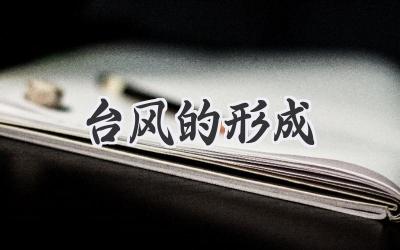 台风的形成